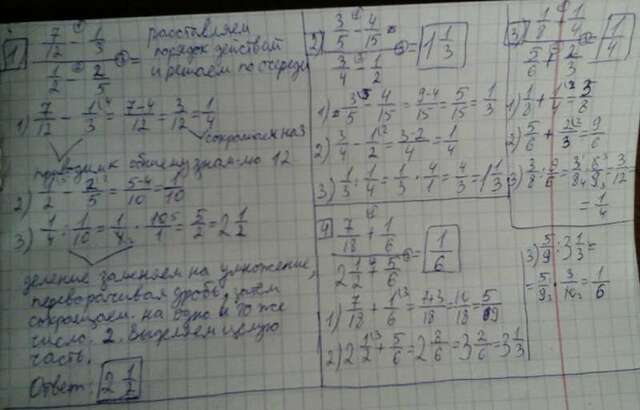 1 (7/12 - 1/3) / (1/2 - 2/5) = расставляем
порядок действий
и решаем по очереди
1) 7/12 - 1/3 = 7-4/12 = 3/12 = 1/4
сокращаем на 3
приводим к общему знам-лю 12
2) 1/2 - 2/5 = 5-4/10 = 1/10
3) 1/4 : 1/10 = 1/4 · 10/1 = 5/2 = 2 1/2
деление заменяем на умножение,
переворачивая дробь,
сокращаем на одно и то же
число 2. Выделяем целую
часть.
Ответ: 2 1/2
2) (3/5 - 4/15) / (3/4 - 1/2) = 1 1/3
1) 3/5 - 4/15 = 9-4/15 = 5/15 = 1/3
2) 3/4 - 1/2 = 3-2/4 = 1/4
3) 1/3 : 1/4 = 1/3 · 4/1 = 4/3 = 1 1/3
3) (1/8 + 1/4) / (5/6 + 2/3) = 1/4
1) 1/8 + 1/4 = 3/8
2) 5/6 + 2/3 = 9/6
3) 3/8 : 9/6 = 3/8 · 6/9 = 3/12
= 1/4
4 (7/18 + 1/6) / (2 1/2 + 5/6) = 1/6
1) 7/18 + 1/6 = 7+3/18 = 10/18 = 5/9
2) 2 1/2 + 5/6 = 2 8/6 = 3 2/6 = 3 1/3
3) 5/9 : 3 1/3 =
= 5/9 · 3/10 = 1/6